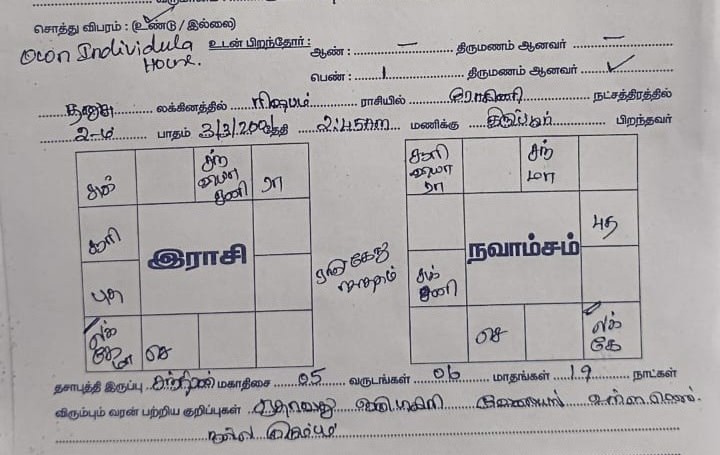 சொத்து விபரம் : (உண்டு / இல்லை)
Own Individula House.
உடன் பிறந்தோர் : ஆண் : – திருமணம் ஆனவர் –
பெண் : 1 திருமணம் ஆனவர் ✓
தனுசு லக்கினத்தில் ரிஷபம் ராசியில் ரோகிணி நட்சத்திரத்தில்
2-ம் பாதம் 3/3/2001 தேதி 2:45am மணிக்கு பிறந்தவர்
சுக் சந் ரா
சனி
சூரி
இராசி
புத
லக் கே செ
சூரி ரா சந் மா
புத
நவாம்சம்
சுக் சனி
செ லக் கே
தசாபுத்தி இருப்பு சந்திரன் மகாதிசை 05 வருடங்கள் 06 மாதங்கள் 19 நாட்கள்
விரும்பும் வரன் பற்றிய குறிப்புகள் உள்ள
நல்ல